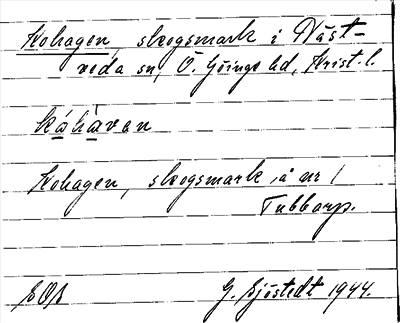 Kohagen, skogsmark i Näst-
veda sn, Ö. Göinge hd, Krist. l.
kåhàvan
Kohagen, skogsmark å nr 1
Tubbarp.
G. Sjöstedt 1944.